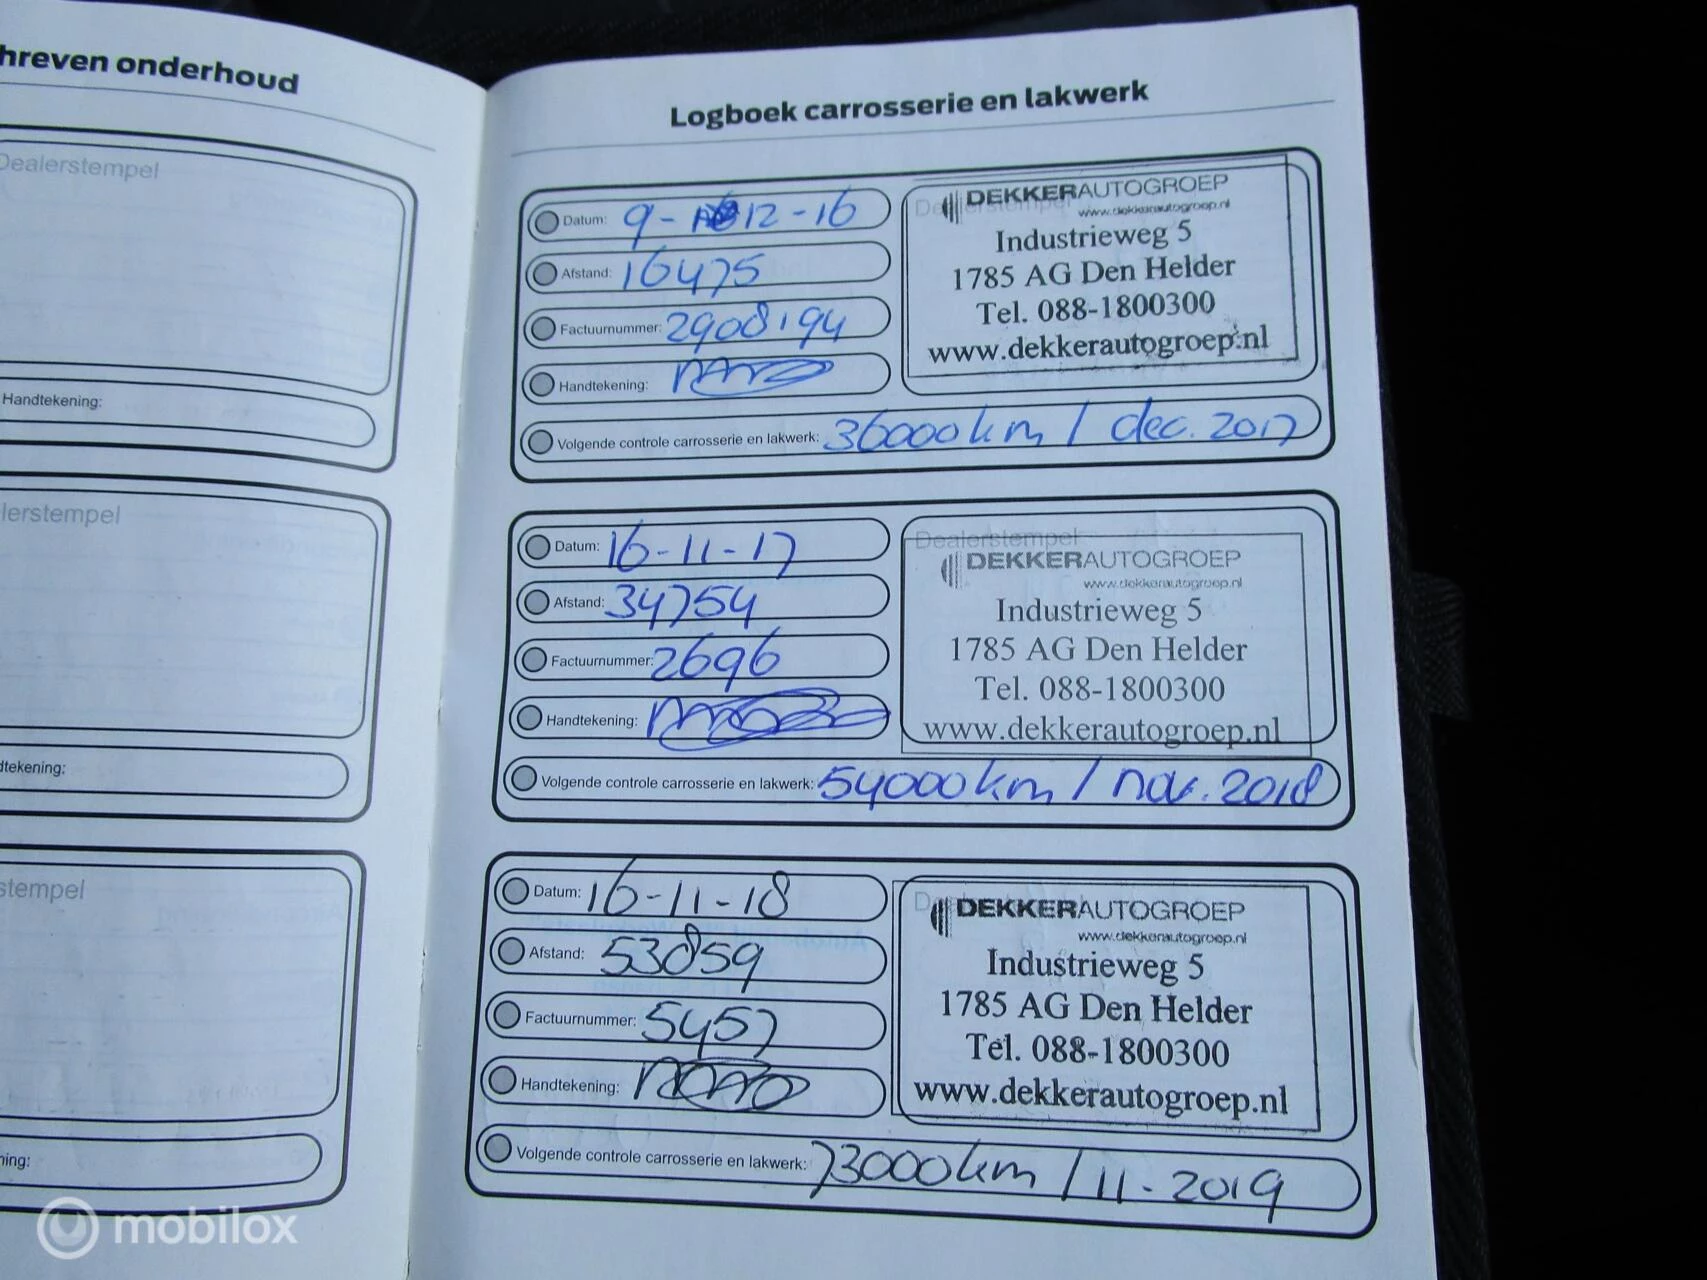 hreven onderhoud
Dealerstempel
Handtekening:
lerstempel
dtekening:
stempel
ning:
Logboek carrosserie en lakwerk
Datum: 9-12-16
Afstand: 16475
Factuurnummer: 2908194
Handtekening:
Volgende controle carrosserie en lakwerk: 36000km / dec. 2017
DEKKERAUTOGROEP
www.dekkerautogroep.nl
Industrieweg 5
1785 AG Den Helder
Tel. 088-1800300
www.dekkerautogroep.nl
Datum: 16-11-17
Afstand: 34754
Factuurnummer: 2696
Handtekening:
Volgende controle carrosserie en lakwerk: 54000km / nov. 2018
Dealerstempel
DEKKERAUTOGROEP
www.dekkerautogroep.nl
Industrieweg 5
1785 AG Den Helder
Tel. 088-1800300
www.dekkerautogroep.nl
Datum: 16-11-18
Afstand: 53859
Factuurnummer: 5457
Handtekening:
Volgende controle carrosserie en lakwerk: 73000km / 11-2019
DEKKERAUTOGROEP
www.dekkerautogroep.nl
Industrieweg 5
1785 AG Den Helder
Tel. 088-1800300
www.dekkerautogroep.nl
mobilox